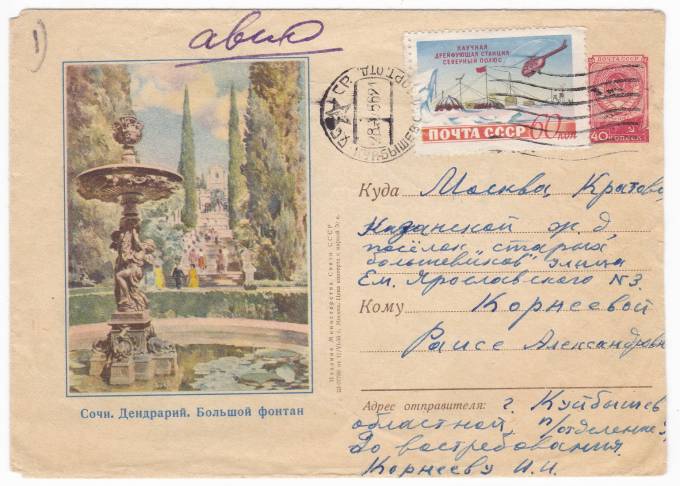 1)
авиа
НАУЧНАЯ
ДРЕЙФУЮЩАЯ СТАНЦИЯ
СЕВЕРНЫЙ ПОЛЮС
ПОЧТА СССР
60 коп
ПОЧТА СССР
40 КОПЕЕК
Куда Москва, Кратово
Казанской ж. д.
посёлок „старых
большевиков" улица
Ем. Ярославского №3.
Кому Корнеевой
Раисе Александровне
Адрес отправителя: г. Куйбышев
областной, п/отделение
До востребования.
Корнееву И.И.
Сочи. Дендрарий. Большой фонтан
Издание Министерства Связи СССР